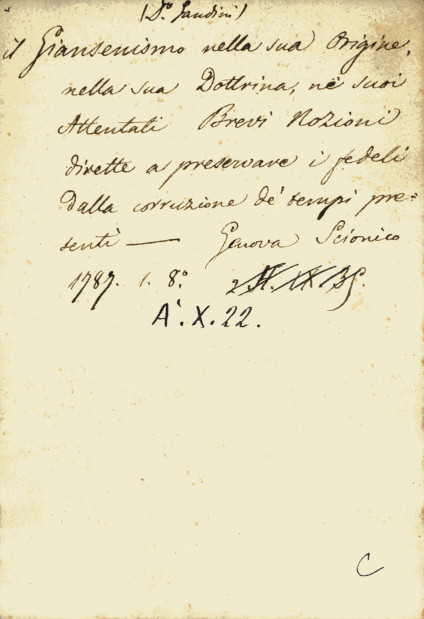 (Dr. Gandini)
il Giansenismo nella sua Origine,
nella sua Dottrina, ne' suoi
Attentati Brevi Nozioni
dirette a preservare i fedeli
dalla corruzione de' tempi pre=
senti — Genova Scionico
1787. 1. 8.°
A'. X. 22.
C